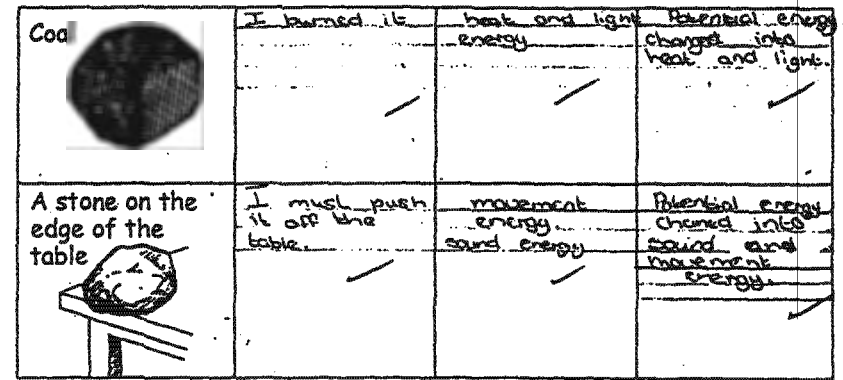 Coal
I burned it
heat and light
energy
Potential energy
changed into
heat and light.
A stone on the
edge of the
table
I must push
it off the
table.
movement
energy.
sound energy
Potential energy
chaned into
sound and
movement
energy.